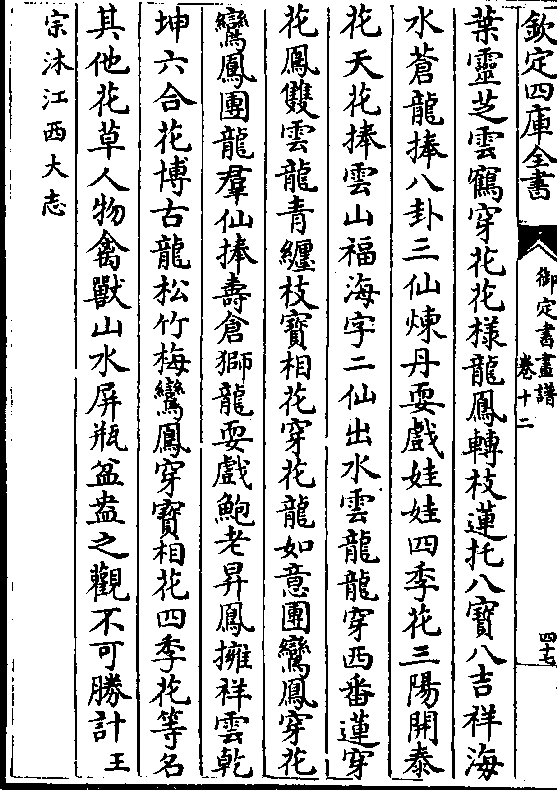 欽定四庫全書
御定書畫譜
卷十二
四十七
葉靈芝雲鶴穿花花樣龍鳳轉枝蓮托八寶八吉祥海
水蒼龍捧八卦三仙煉丹耍戲娃娃四季花三陽開泰
花天花捧雲山福海字二仙出水雲龍龍穿西番蓮穿
花鳳雙雲龍青纏枝寶相花穿花龍如意團鸞鳳穿花
鸞鳳團龍羣仙捧壽倉獅龍耍戲鮑老昇鳳擁祥雲乾
坤六合花博古龍松竹梅鸞鳳穿寶相花四季花等名
其他花草人物禽獸山水屏瓶盆盎之觀不可勝計王
宗沐江西大志